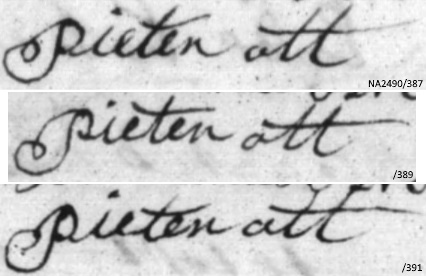 pieten att
NA2490/387
pieten att
/389
pieten att
/391